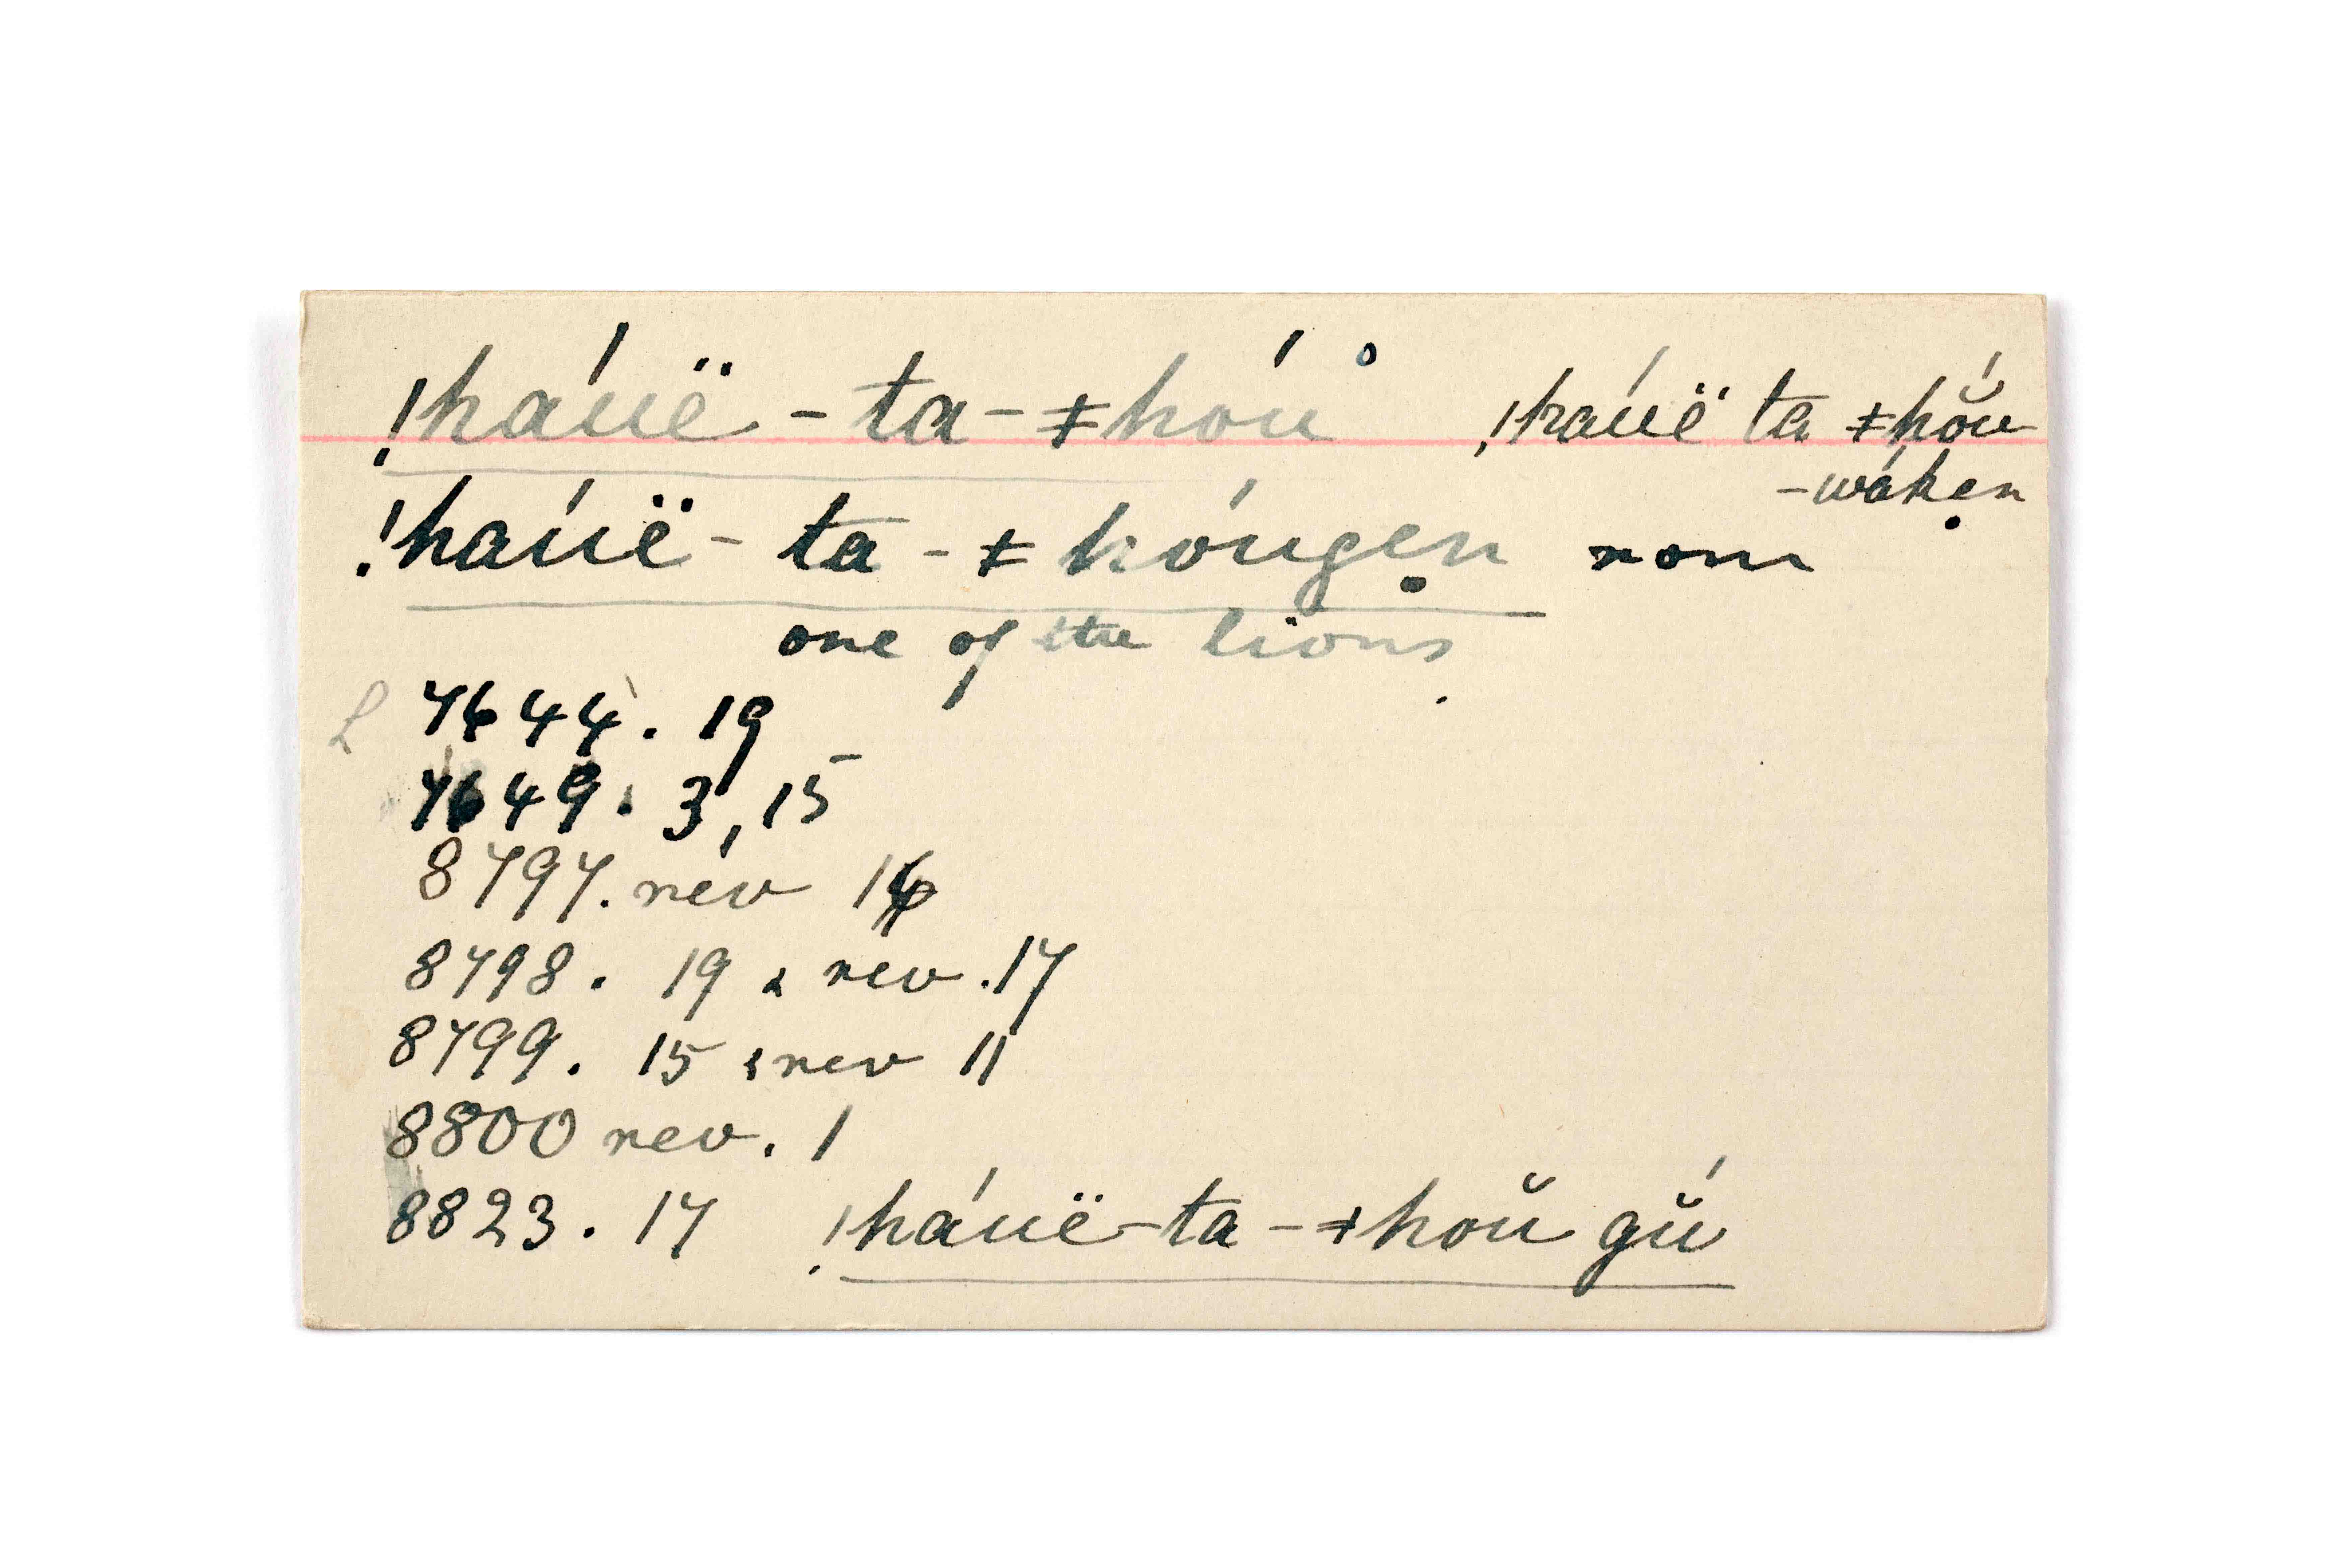 !háuë-ta-ǂhóu° !háuë ta ǂhóŭ
-wáken
!háuë-ta-ǂhóugẹn nom
one of the lions.
L 7644. 19
7649. 3, 15
8797. rev 16
8798. 19 & rev. 17
8799. 15 & rev 11
8800 rev. 1
8823. 17 !háuë-ta-ǂhoŭ gŭ́